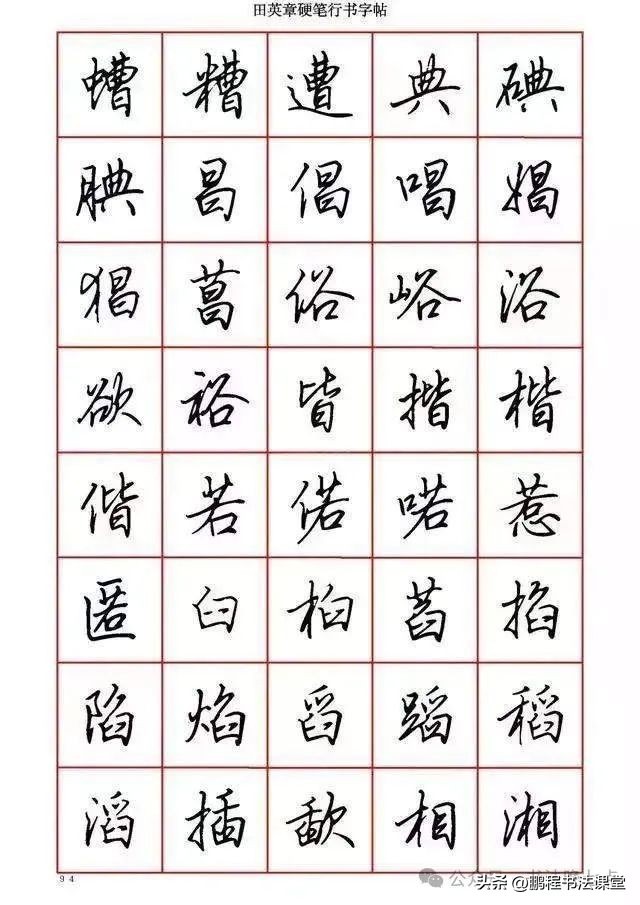 田英章硬笔行书字帖
螬 糟 遭 典 碘
腆 昌 倡 唱 娼
猖 菖 俗 峪 浴
欲 裕 皆 揩 楷
偕 若 偌 喏 惹
匿 臼 桕 萏 掐
陷 焰 舀 蹈 稻
滔 插 歃 相 湘
94
头条 @鹏程书法课堂